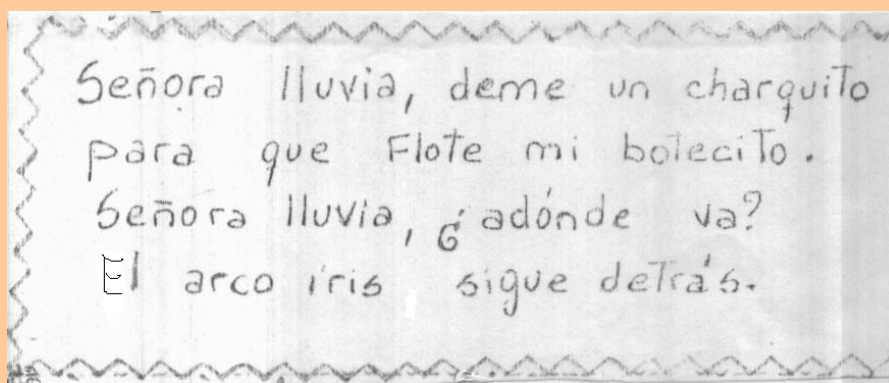 Señora lluvia, deme un charquito
para que Flote mi botecito.
Señora lluvia, ¿adónde va?
El arco iris sigue detrás.